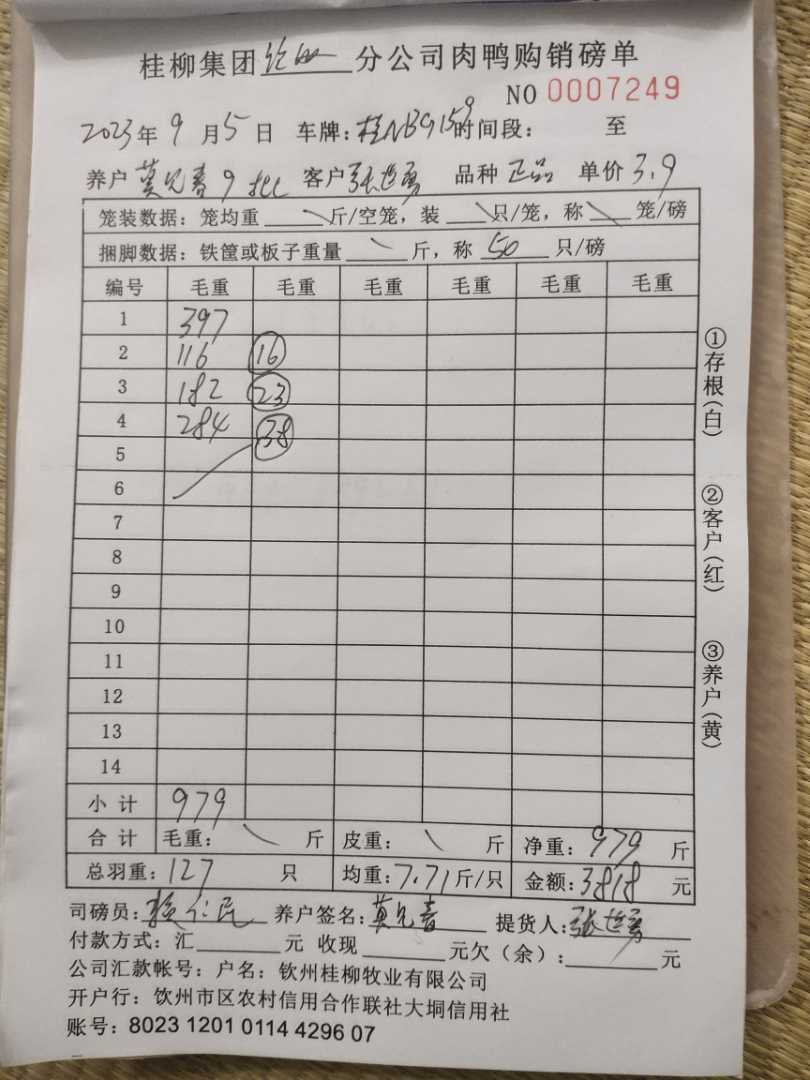 桂柳集团 分公司肉鸭购销磅单
NO 0007249
2023年9月5日 车牌:桂NB9159 时间段: 至
养户 莫兄春 9批 客户 张世勇 品种 正品 单价 3.9
笼装数据:笼均重 斤/空笼,装 只/笼,称 笼/磅
捆脚数据:铁筐或板子重量 斤,称 50 只/磅
编号 毛重 毛重 毛重 毛重 毛重 毛重
1 397
2 116 16
3 182 23
4 284 38
5
6
7
8
9
10
11
12
13
14
小计 979
合计 毛重: 斤 皮重: 斤 净重:979 斤
总羽重:127 只 均重:7.71斤/只 金额:3818 元
司磅员: 养户签名:莫兄春 提货人:张世勇
付款方式:汇 元 收现 元欠(余): 元
公司汇款帐号:户名:钦州桂柳牧业有限公司
开户行:钦州市区农村信用合作联社大垌信用社
账号:8023 1201 0114 4296 07
①存根(白)
②客户(红)
③养户(黄)